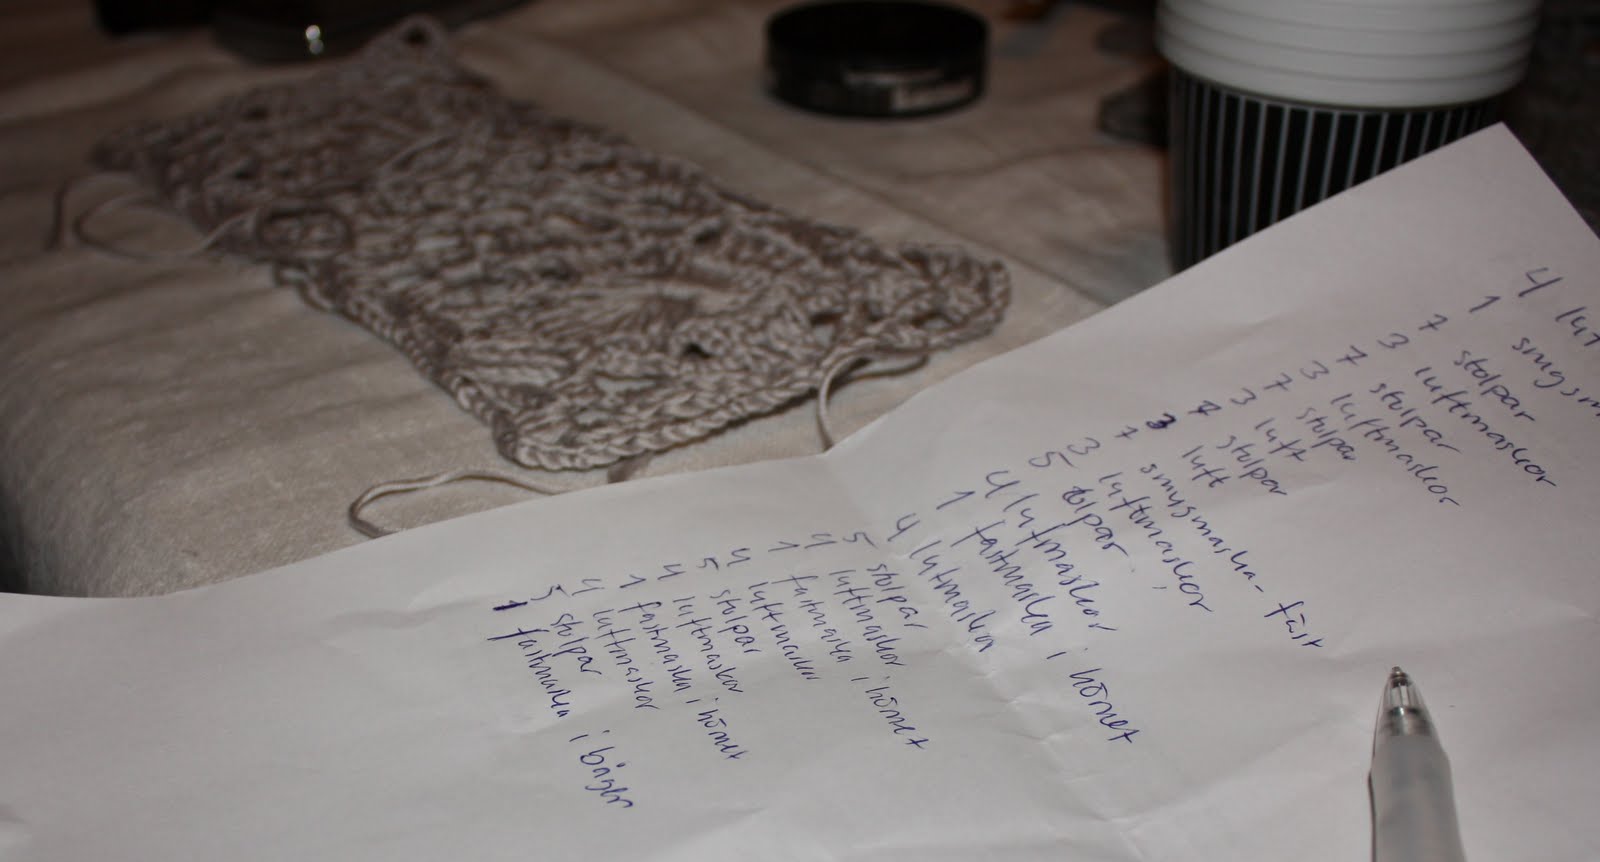 4 luft
1 smygsm
7 stolpar
3 luftmaskor
7 stolpar
3 luftmaskor
7 stolpar
3 luft
7 stolpar
3 luft
1 smygmaska - fäst
3 luftmaskor
5 stolpar
4 luftmaskor
1 fastmaska i hörnet
4 luftmaska
5 stolpar
4 luftmaskor
1 fastmaska i hörnet
4 luftmaskor
5 stolpar
4 luftmaskor
1 fastmaska i hörnet
4 luftmaskor
5 stolpar
1 fastmaska i bågen